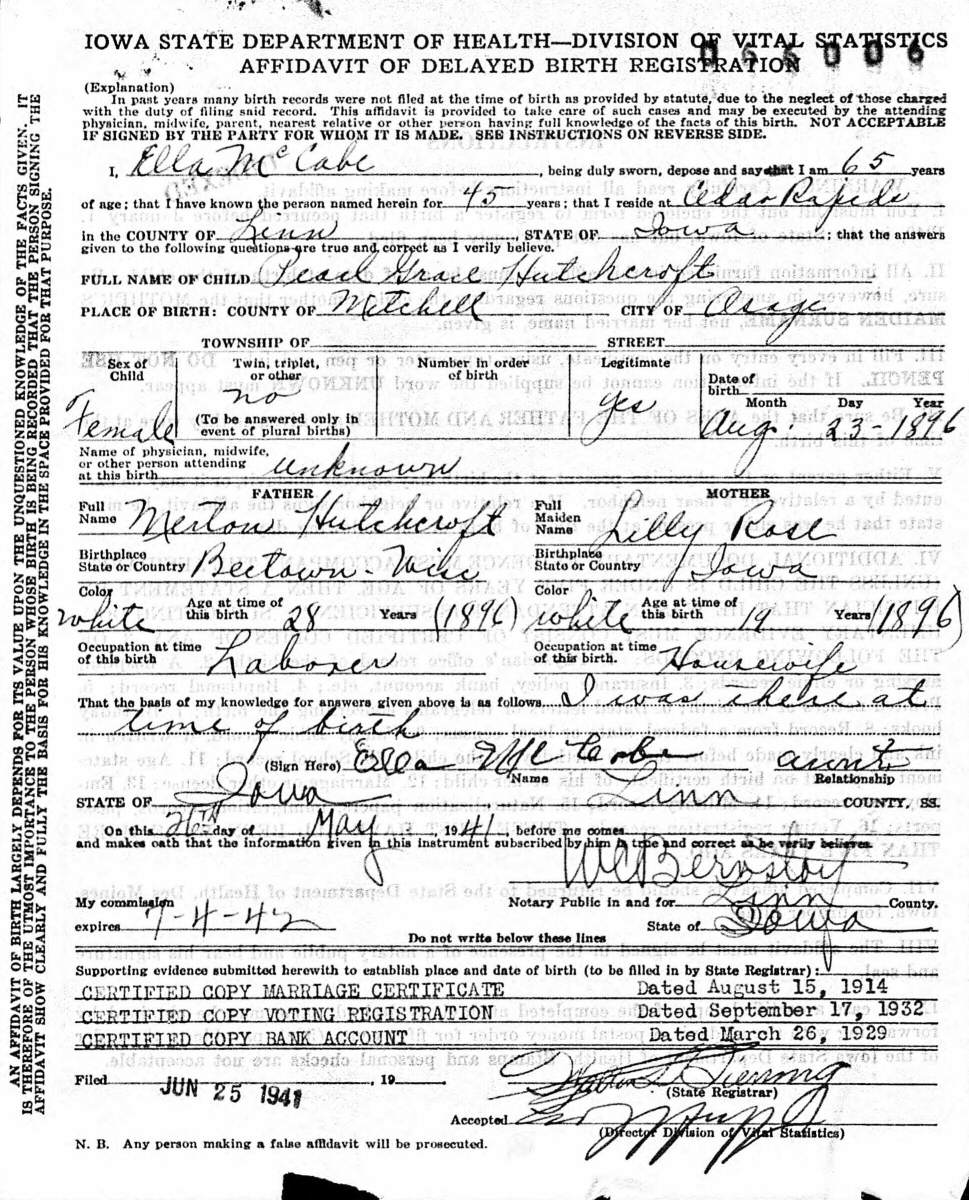 IOWA STATE DEPARTMENT OF HEALTH—DIVISION OF VITAL STATISTICS
AFFIDAVIT OF DELAYED BIRTH REGISTRATION
(Explanation)
In past years many birth records were not filed at the time of birth as provided by statute, due to the neglect of those charged
with the duty of filing said record. This affidavit is provided to take care of such cases and may be executed by the attending
physician, midwife, parent, nearest relative or other person having full knowledge of the facts of this birth. NOT ACCEPTABLE
IF SIGNED BY THE PARTY FOR WHOM IT IS MADE. SEE INSTRUCTIONS ON REVERSE SIDE.
I, Ella McCabe, being duly sworn, depose and say that I am 65 years
of age; that I have known the person named herein for 45 years; that I reside at Cedar Rapids
in the COUNTY OF Linn, STATE OF Iowa; that the answers
given to the following questions are true and correct as I verily believe.
FULL NAME OF CHILD Pearl Grace Hutchcroft
PLACE OF BIRTH: COUNTY OF Mitchell CITY OF Osage
TOWNSHIP OF STREET
Sex of Child Twin, triplet, or other Number in order of birth Legitimate Date of birth Month Day Year
Female no yes Aug: 23-1896
(To be answered only in event of plural births)
Name of physician, midwife,
or other person attending
at this birth unknown
FATHER MOTHER
Full Name Merton Hutchcroft Full Maiden Name Lilly Rose
Birthplace State or Country Beetown. Wisc Birthplace State or Country Iowa
Color white Age at time of this birth 28 Years (1896) Color white Age at time of this birth 19 Years (1896)
Occupation at time of this birth Laborer Occupation at time of this birth. Housewife
That the basis of my knowledge for answers given above is as follows. I was there at
time of birth
(Sign Here) Ella McCabe aunt
Name Relationship
STATE OF Iowa Linn COUNTY, SS.
On this 26th day of May, 1941, before me comes
and makes oath that the information given in this instrument subscribed by him is true and correct as he verily believes.
My commission expires 7-4-42 Notary Public in and for Linn County.
State of Iowa
Do not write below these lines
Supporting evidence submitted herewith to establish place and date of birth (to be filled in by State Registrar):
CERTIFIED COPY MARRIAGE CERTIFICATE Dated August 15, 1914
CERTIFIED COPY VOTING REGISTRATION Dated September 17, 1932
CERTIFIED COPY BANK ACCOUNT Dated March 26, 1929
Filed JUN 25 1941, 19
(State Registrar)
Accepted
(Director Division of Vital Statistics)
N. B. Any person making a false affidavit will be prosecuted.
AN AFFIDAVIT OF BIRTH LARGELY DEPENDS FOR ITS VALUE UPON THE UNQUESTIONED KNOWLEDGE OF THE FACTS GIVEN. IT
IS THEREFORE OF THE UTMOST IMPORTANCE TO THE PERSON WHOSE BIRTH IS BEING RECORDED THAT THE PERSON SIGNING THE
AFFIDAVIT SHOW CLEARLY AND FULLY THE BASIS FOR HIS KNOWLEDGE IN THE SPACE PROVIDED FOR THAT PURPOSE.